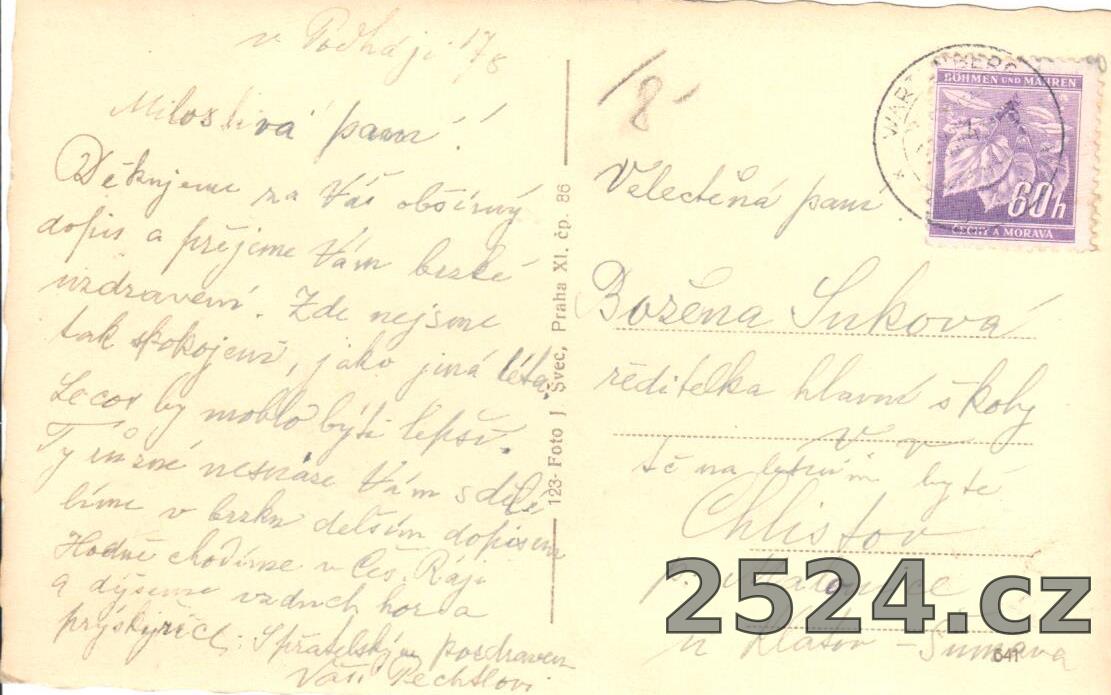 v Podhájí 17/8
Milostivá paní!
Děkujeme za Váš obšírný
dopis a přejeme Vám brzké
uzdravení. Zde nejsme
tak spokojeni, jako jiná léta.
Lecos by mohlo býti lepší.
Ty různé nesnáze Vám sdělí
líme v brzku delším dopisem
Hodně chodíme v Čes. Ráji
a dýšeme vzduch hor a
pryskyřici. S přátelským pozdravem
Vaši Pechtlovi
123- Foto J. Švec, Praha XI. čp. 86
8
WARTENBERG
BÖHMEN UND MÄHREN
60h
ČECHY A MORAVA
Velectěná paní
Božena Suková
ředitelka hlavní školy
v v
tč na letním bytě
Chlistov
p.
u Klatov – Šumava
641
2524.cz